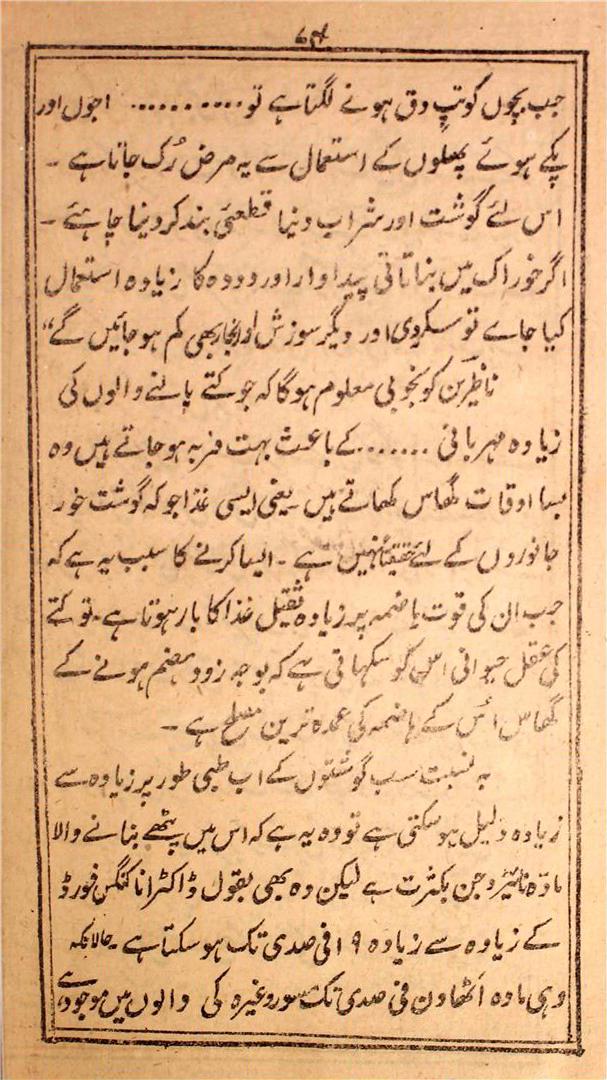 ۷۴
جب بچوں کو تپ دق ہونے لگتا ہے تو .......... اجوں اور
پکے ہوئے پھلوں کے استعمال سے یہ مرض رُک جاتا ہے ۔
اس لئے گوشت اور شراب دینا قطعئی بند کر دینا چاہئے ۔
اگر خوراک میں بناتاتی پیداوار اور دودہ کا زیادہ استعمال
کیا جاے تو سکروی اور دیگر سوزش اور بھی کم ہو جائیں گے“
ناظرین کو بخوبی معلوم ہوگا کہ جو کتے پالنے والوں کی
زیادہ مہربانی ....... کے باعث بہت فربہ ہو جاتے ہیں وہ
بسا اوقات گھاس کھاتے ہیں ۔ یعنی ایسی غذا جو کہ گوشت خور
جانوروں کے لئے حقیقتاً نہیں ہے ۔ ایسا کرنے کا سبب یہ ہے کہ
جب ان کی قوت ہاضمہ پر زیادہ ثقیل غذا کا بار ہوتا ہے ۔ تو کتے
کی عقل حیوانی اس کو سکہاتی ہے کہ بوجہ زود ہضم ہونے کے
گھاس اُس کے ہاضمہ کی عمدہ ترین مصلح ہے ۔
بہ نسبت سب گوشتوں کے اب طبی طور پر زیادہ سے
زیادہ دلیل ہو سکتی ہے تو وہ یہ ہے کہ اس میں پٹھے بنانے والا
مادہ نائیٹروجن بکثرت ہے لیکن وہ بھی بقول ڈاکٹر انا کنگس فورڈ
کے زیادہ سے زیادہ ۱۹ فی صدی تک ہو سکتا ہے ۔ حالانکہ
وہی مادہ اٹھاون فی صدی تک مسور وغیرہ کی والوں میں موجود ہے